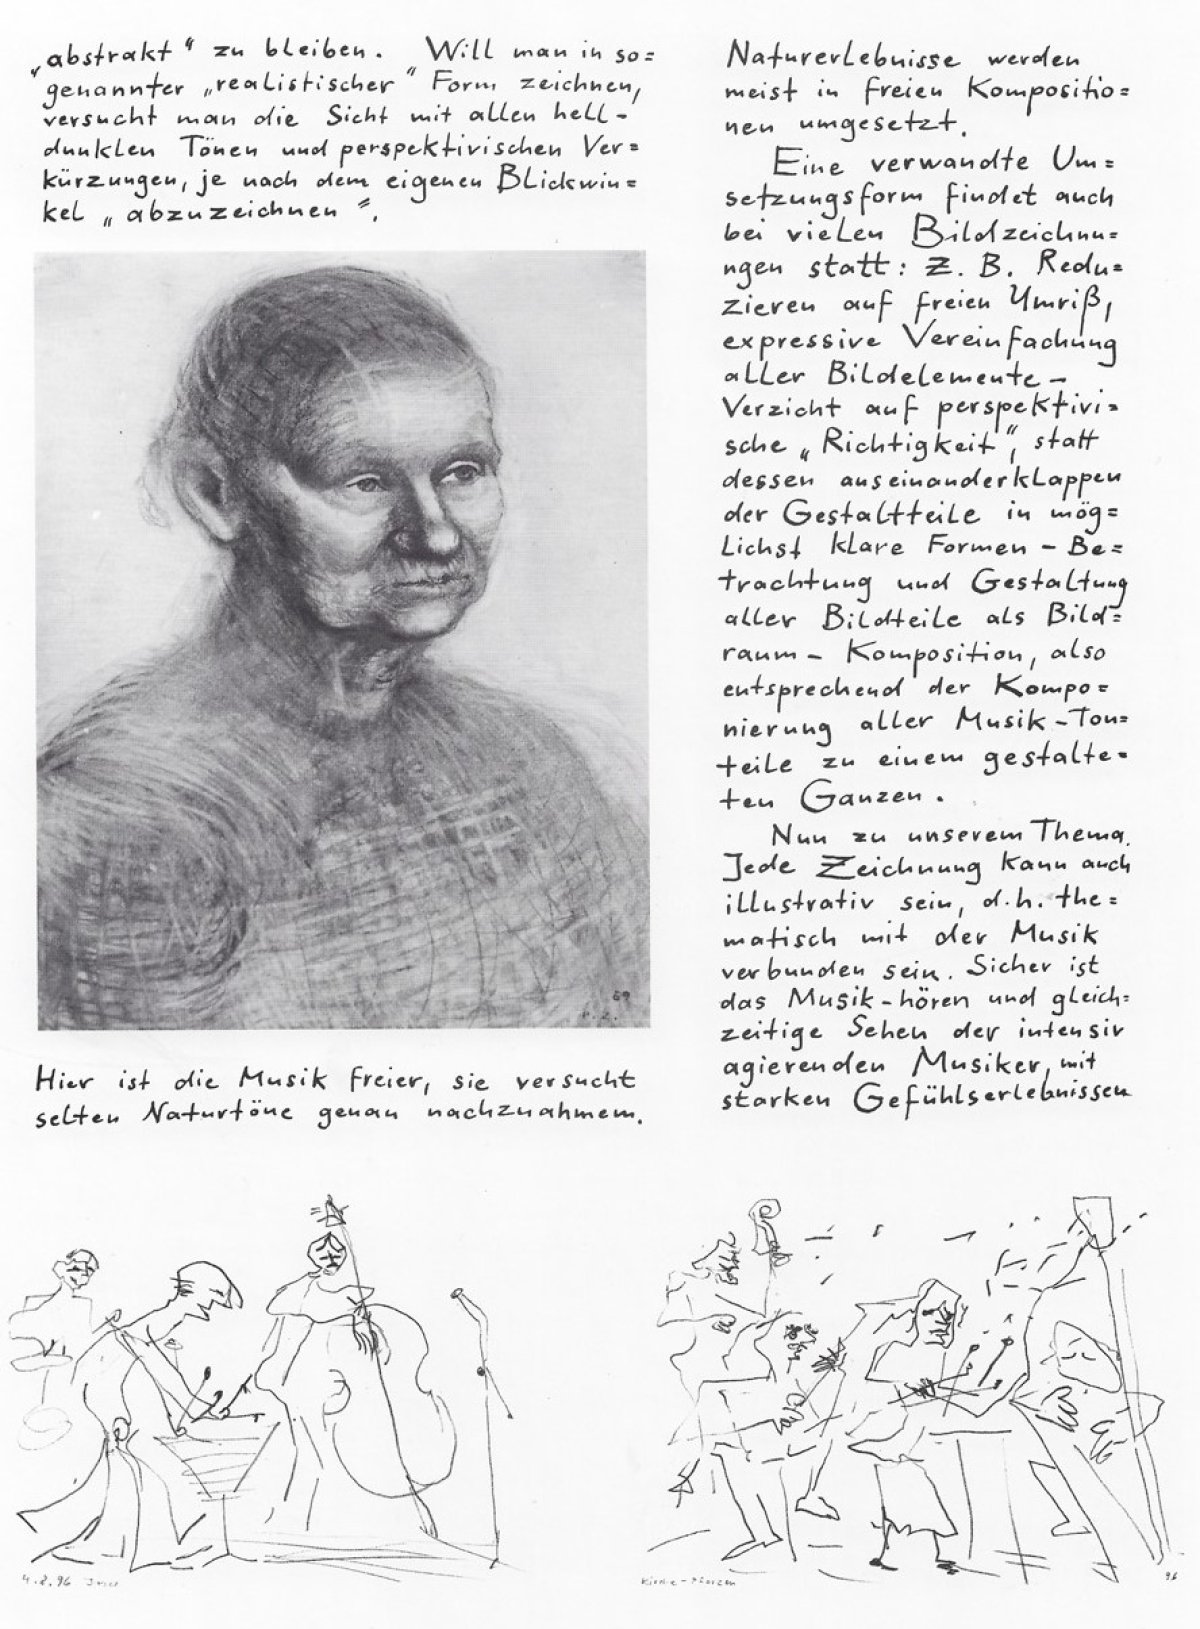 „abstrakt“ zu bleiben. Will man in so=
genannter „realistischer“ Form zeichnen,
versucht man die Sicht mit allen hell-
dunklen Tönen und perspektivischen Ver=
kürzungen, je nach dem eigenen Blickwin=
kel „abzuzeichnen“.
59
Hier ist die Musik freier, sie versucht
selten Naturtöne genau nachzuahmem.
Naturerlebnisse werden
meist in freien Kompositio=
nen umgesetzt.
Eine verwandte Um=
setzungsform findet auch
bei vielen Bildzeichnu=
ngen statt: Z. B. Redu=
zieren auf freien Umriß,
expressive Vereinfachung
aller Bildelemente -
Verzicht auf perspektivi=
sche „Richtigkeit“, statt
dessen auseinanderklappen
der Gestaltteile in mög=
lichst klare Formen - Be=
trachtung und Gestaltung
aller Bildteile als Bild=
raum - Komposition, also
entsprechend der Kompo=
nierung aller Musik-Ton=
teile zu einem gestalte=
ten Ganzen.
Nun zu unserem Thema.
Jede Zeichnung kann auch
illustrativ sein, d.h. the=
matisch mit der Musik
verbunden sein. Sicher ist
das Musik-hören und gleich=
zeitige Sehen der intensiv
agierenden Musiker, mit
starken Gefühlserlebnissen
4.8.96
96